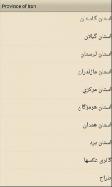 Province of Iran
استان گلستان
استان گیلان
استان لرستان
استان مازندران
استان مرکزی
استان هرمزگان
استان همدان
استان یزد
گالری عکسها
حراج